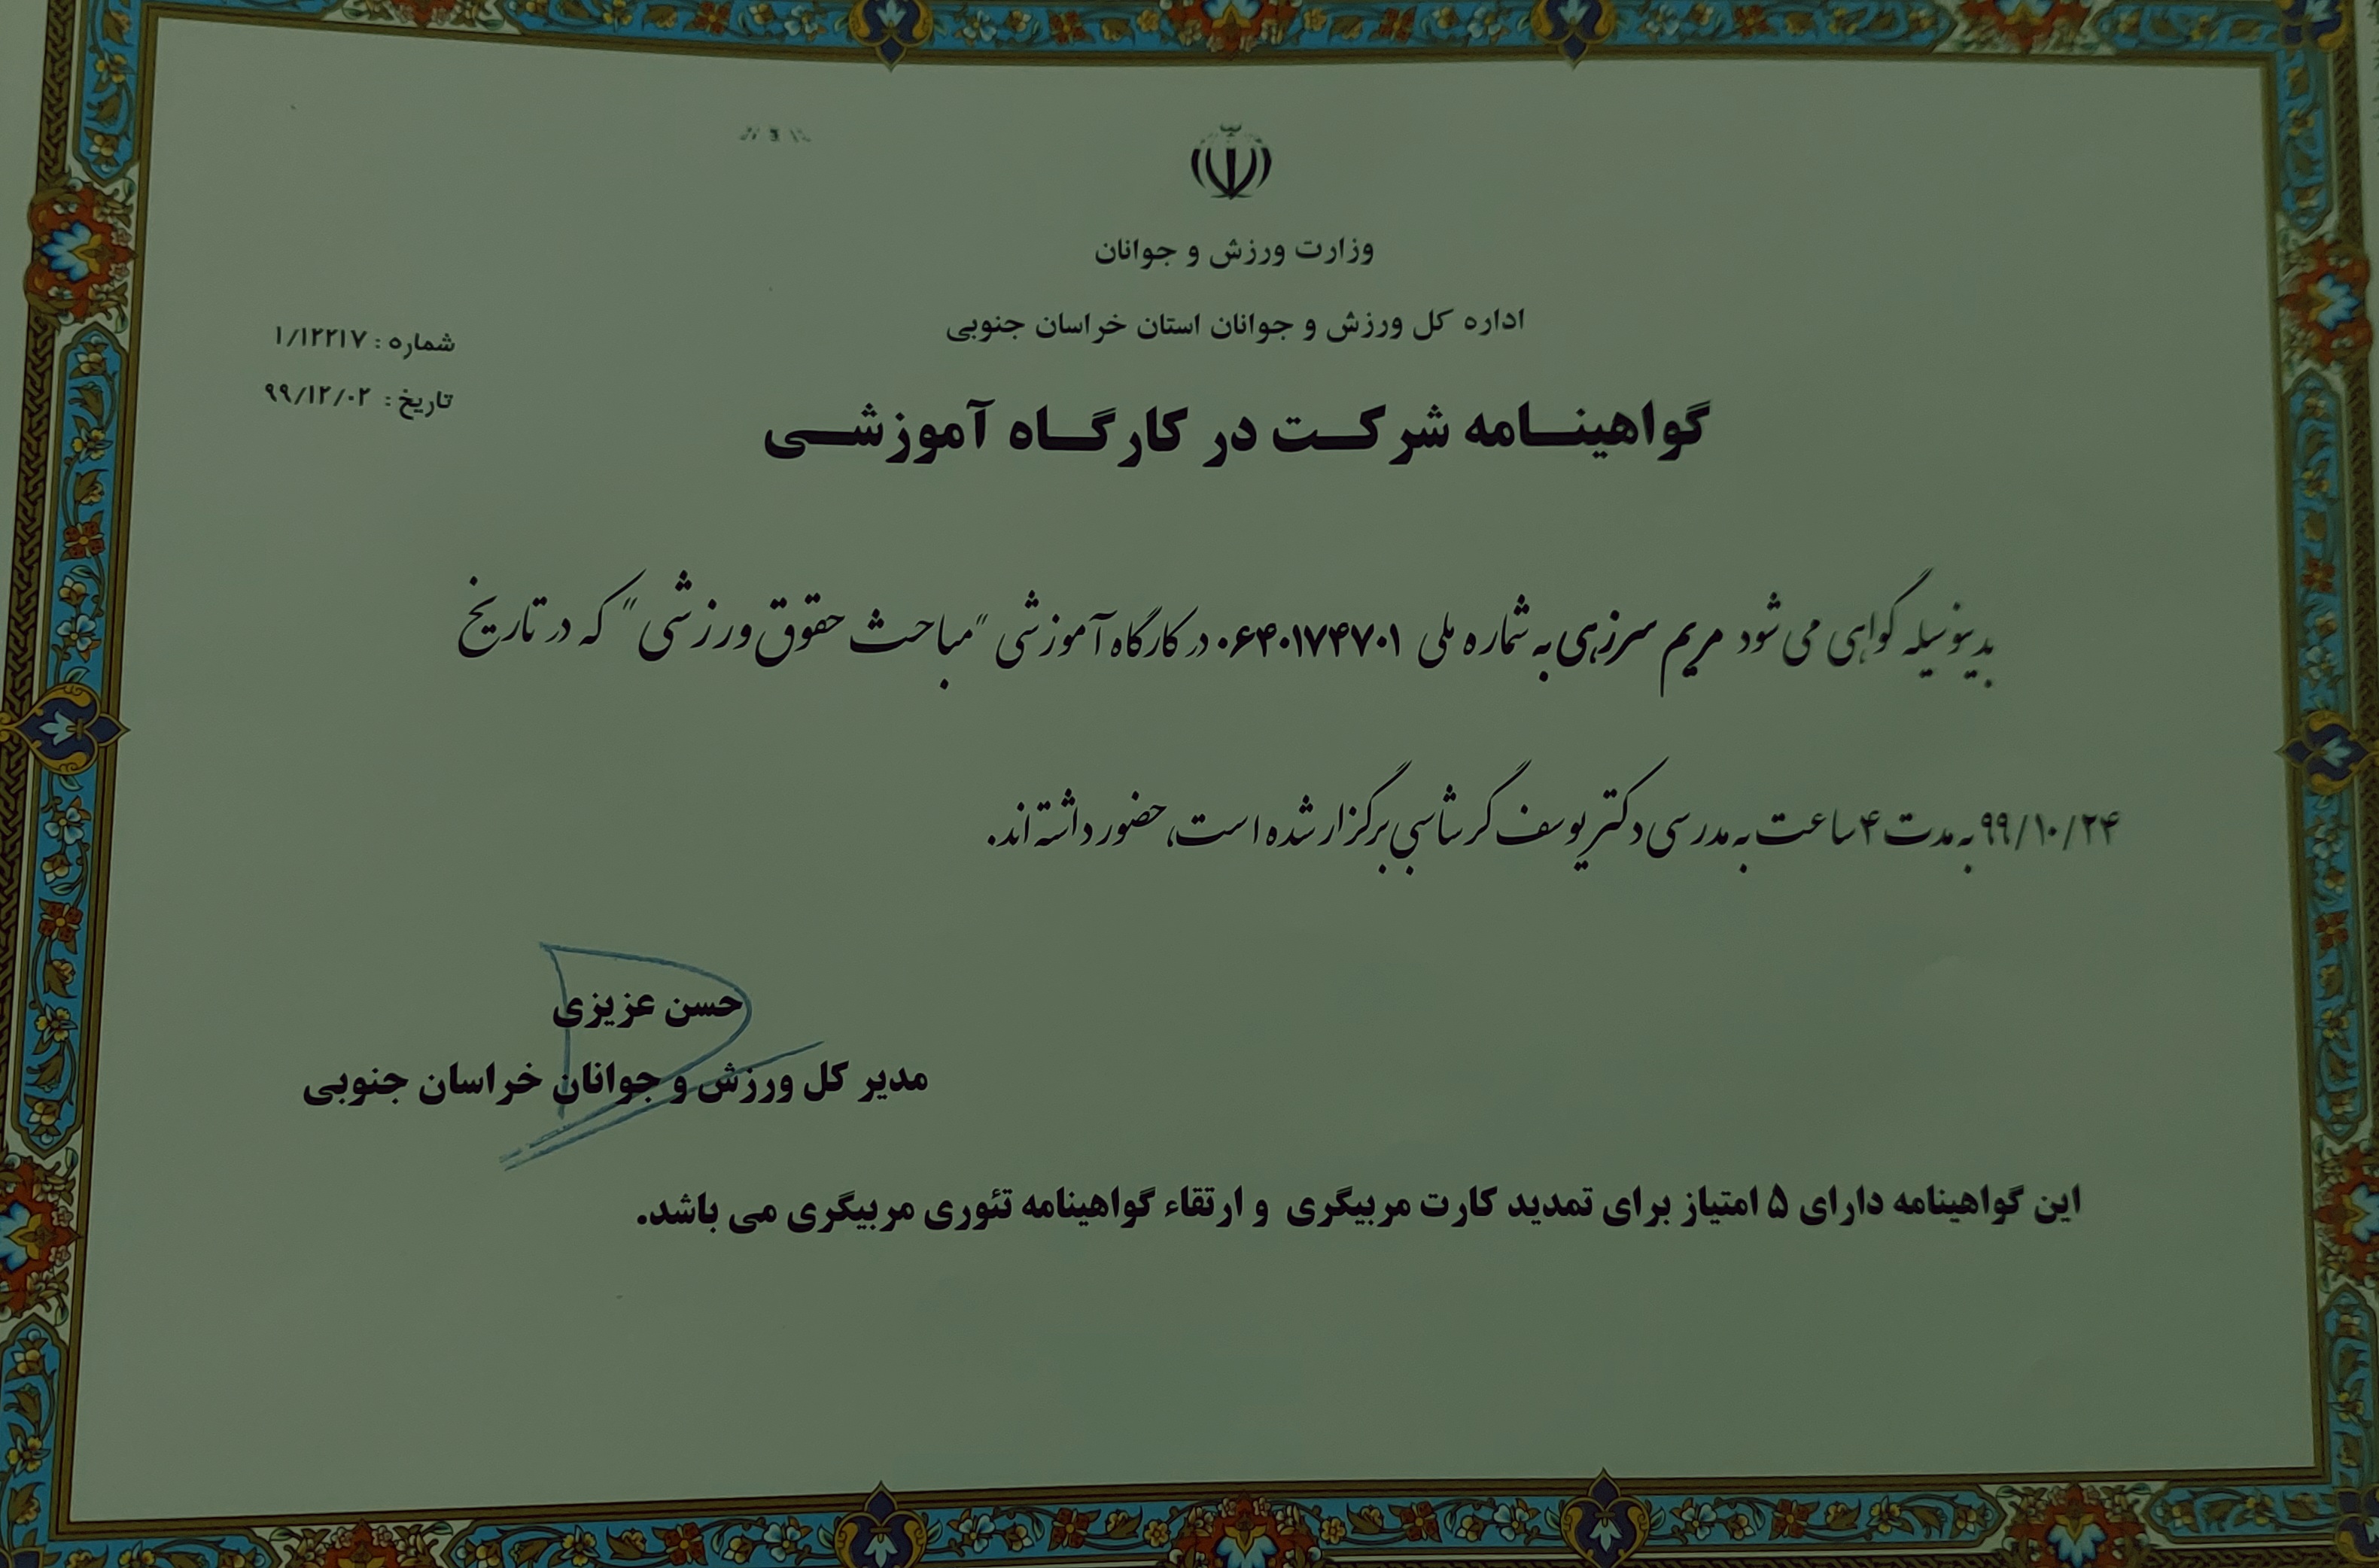 وزارت ورزش و جوانان
اداره کل ورزش و جوانان استان خراسان جنوبی
شماره : ۱/۱۲۲۱۷
تاریخ : ۹۹/۱۲/۰۲
گواهینامه شرکت در کارگاه آموزشی
بدینوسیله گواهی می شود مریم سرزهی به شماره ملی ۰۶۴۰۱۷۴۷۰۱ در کارگاه آموزشی "مباحث حقوق ورزشی" که در تاریخ
۹۹/۱۰/۲۴ به مدت ۴ ساعت به مدرسی دکتر یوسف گرشاسبی برگزار شده است، حضور داشته اند.
حسن عزیزی
مدیر کل ورزش و جوانان خراسان جنوبی
این گواهینامه دارای ۵ امتیاز برای تمدید کارت مربیگری و ارتقاء گواهینامه تئوری مربیگری می باشد.